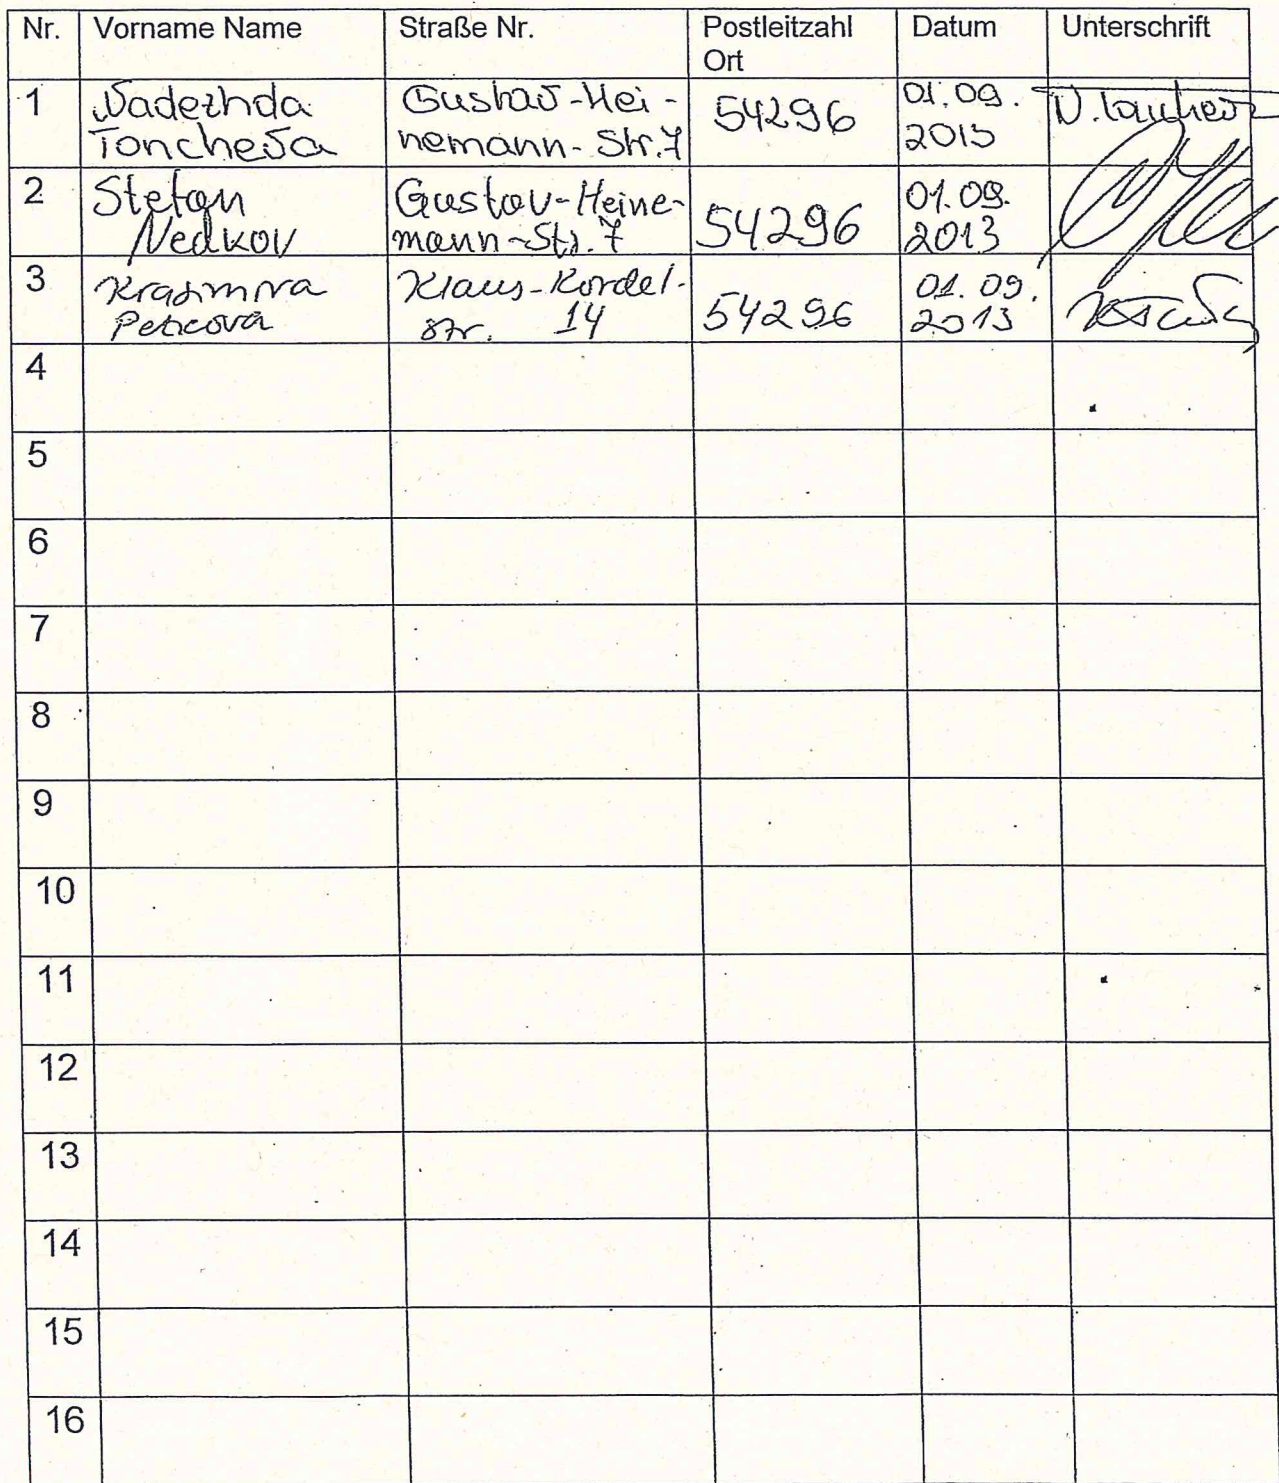 Nr. Vorname Name Straße Nr. Postleitzahl Ort Datum Unterschrift
1 Nadezhda Toncheva Gustav-Hei-nemann-Str.7 54296 01.09. 2013 N. Toncheva
2 Stefan Nedkov Gustav-Heine-mann-Str. 7 54296 01.09. 2013
3 Krasimira Petkova Klaus-Kordel-str. 14 54296 01.09. 2013
4
5
6
7
8
9
10
11
12
13
14
15
16